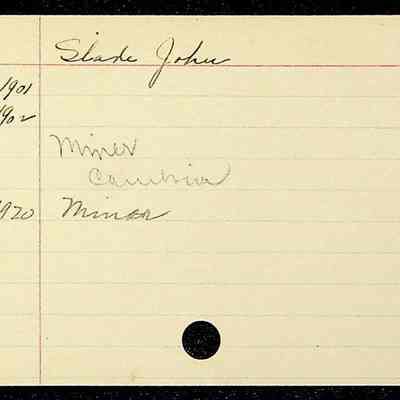 Slade John
1901
1902
Miner
Cambria
1920 Miner